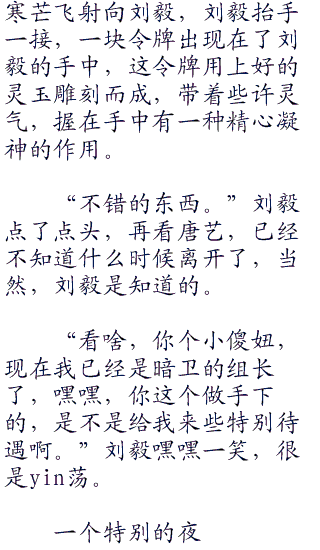 寒芒飞射向刘毅，刘毅抬手
一接，一块令牌出现在了刘
毅的手中，这令牌用上好的
灵玉雕刻而成，带着些许灵
气，握在手中有一种精心凝
神的作用。
“不错的东西。”刘毅
点了点头，再看唐艺，已经
不知道什么时候离开了，当
然，刘毅是知道的。
“看啥，你个小傻妞，
现在我已经是暗卫的组长
了，嘿嘿，你这个做手下
的，是不是给我来些特别待
遇啊。”刘毅嘿嘿一笑，很
是yin荡。
一个特别的夜